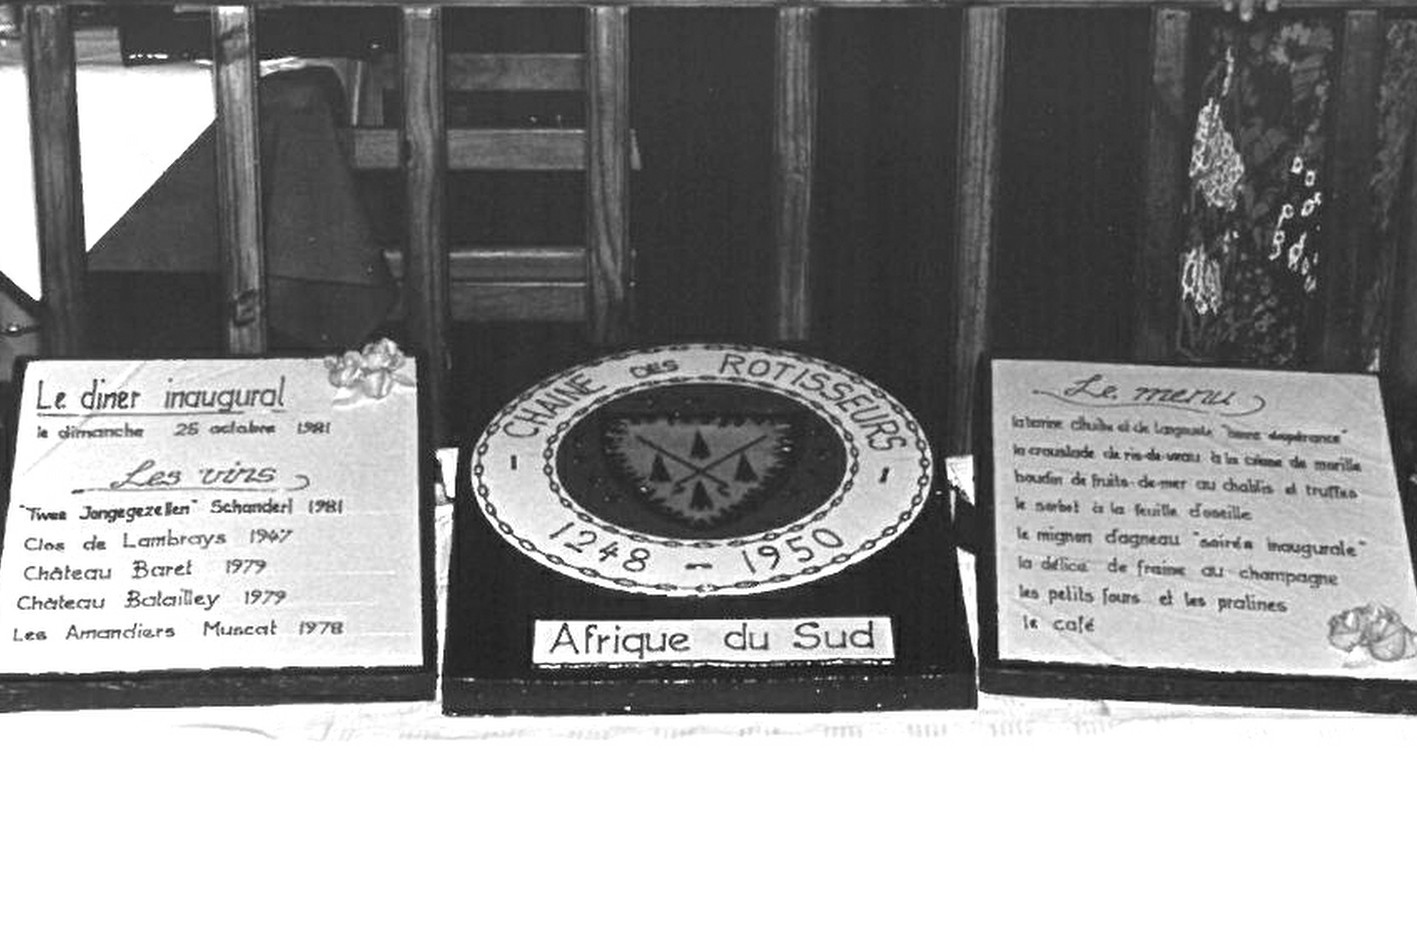 Le diner inaugural
le dimanche 25 octobre 1981
Les vins
"Twee Jongegezellen" Schanderl 1981
Clos de Lambrays 1947
Château Baret 1979
Château Batailley 1979
Les Amandiers Muscat 1978
CHAINE DES ROTISSEURS
1248 - 1950
Afrique du Sud
Le menu
la terrine d'huître et de langouste "bonne espérance"
la croustade de ris-de-veau à la crème de morille
boudin de fruits-de-mer au chablis et truffes
le sorbet à la feuille d'oseille
le mignon d'agneau "soirée inaugurale"
la délice de fraise au champagne
les petits fours et les pralines
le café